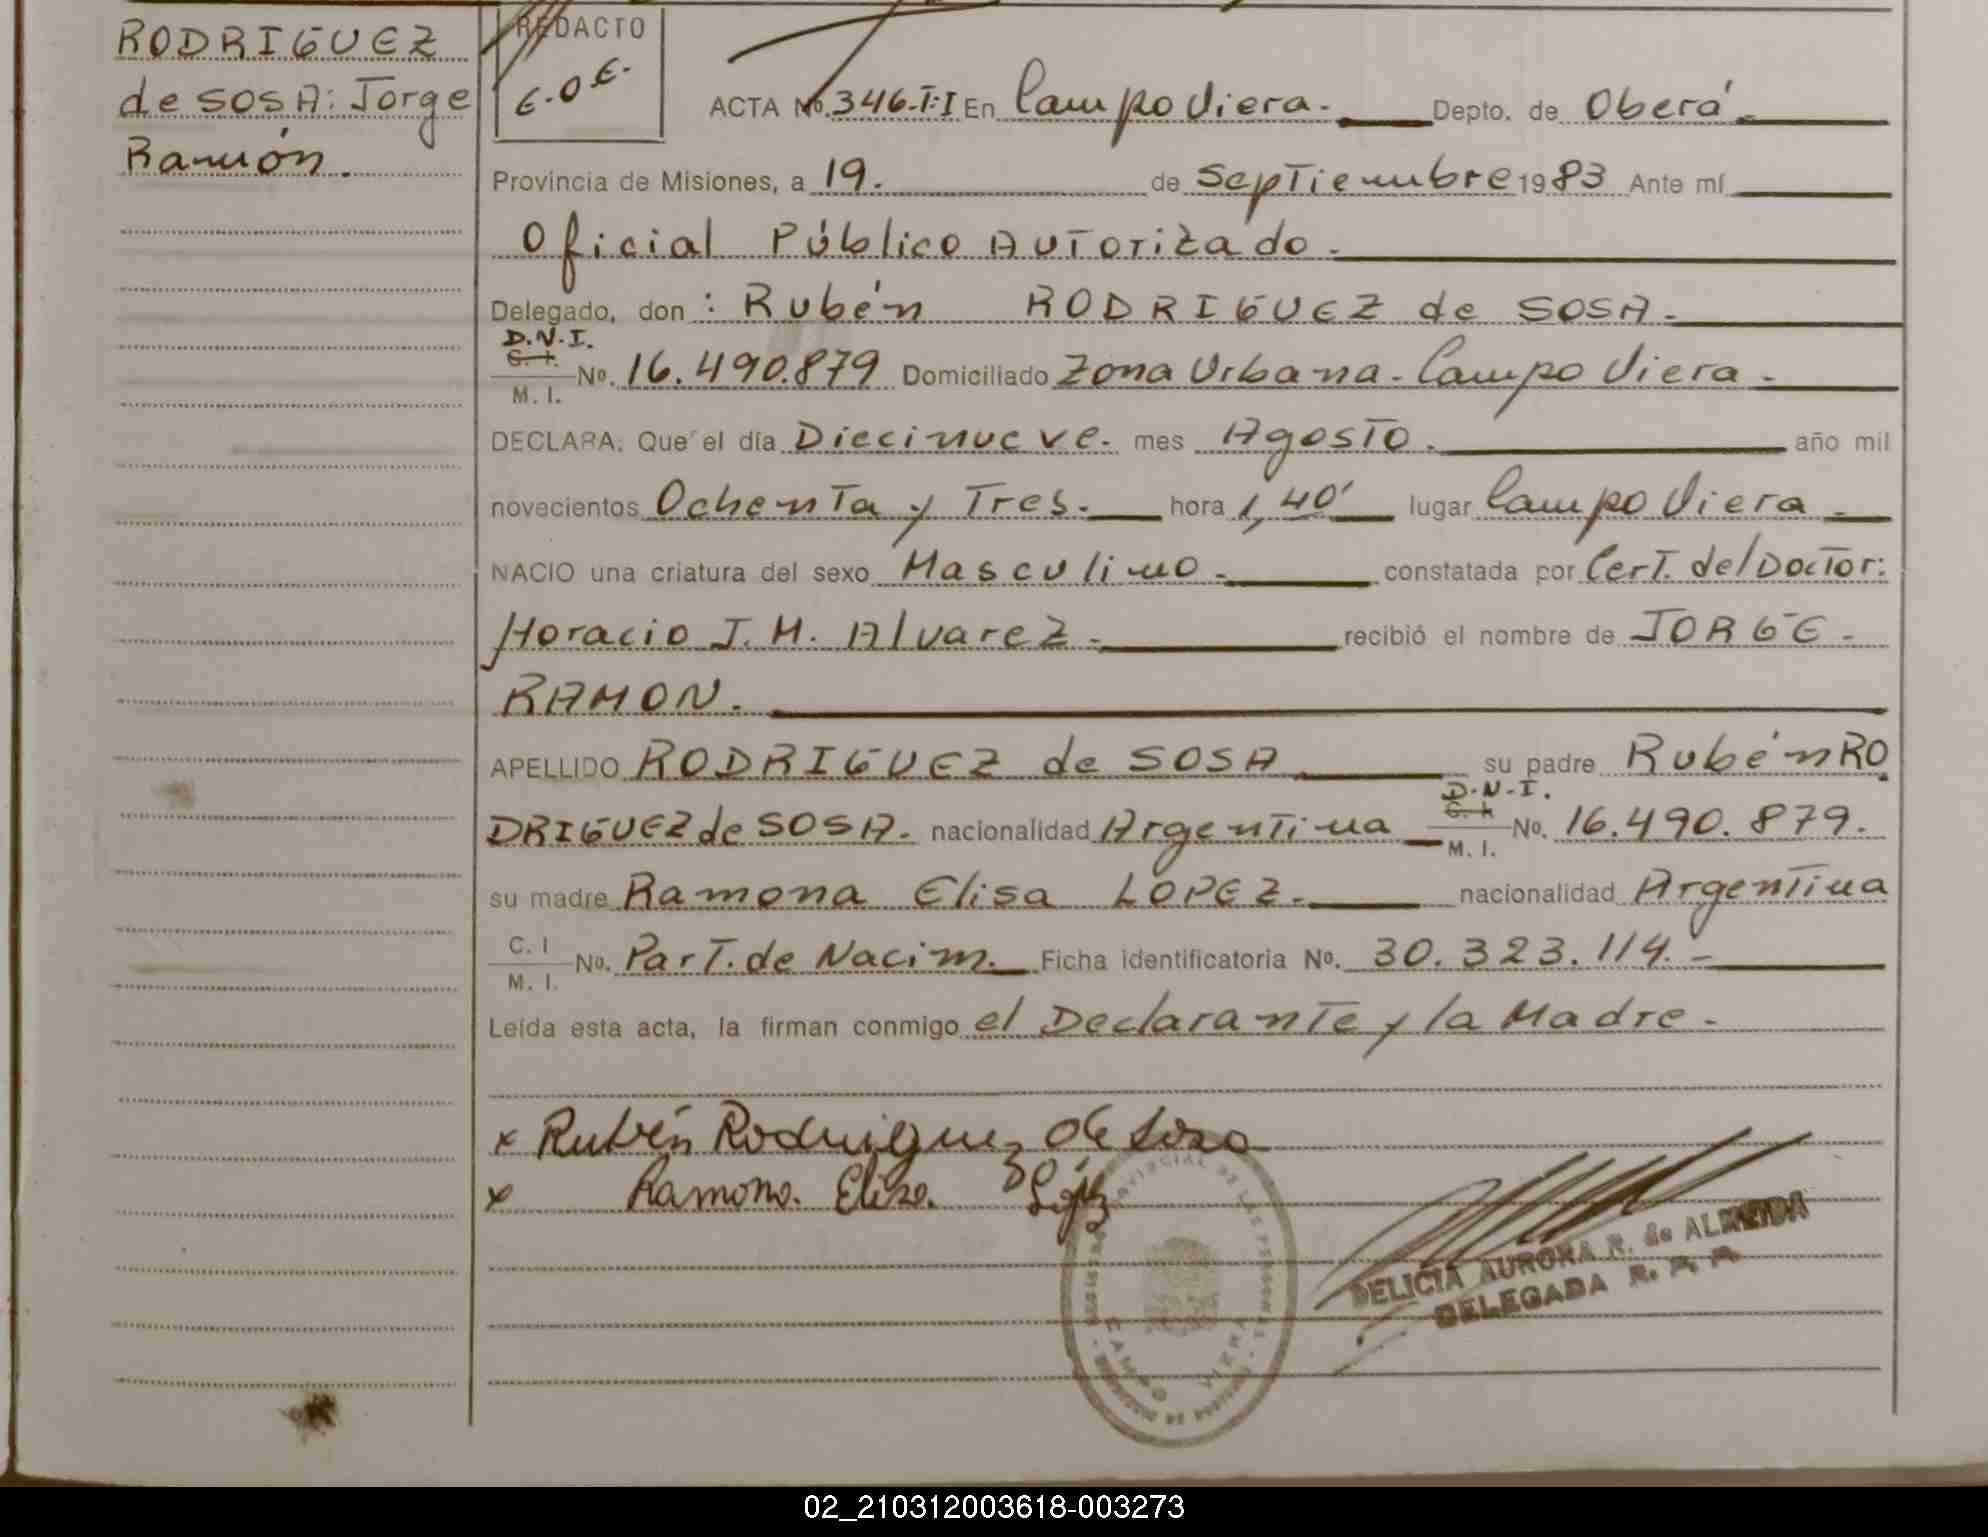 RODRIGUEZ
de SOSA: Jorge
Ramón.
REDACTO
E.O.E.
ACTA No. 346-T:I En Campo Viera. Depto. de Oberá.
Provincia de Misiones, a 19. de Septiembre 1983 Ante mí
Oficial Público Autorizado.
Delegado, don : Rubén RODRIGUEZ de SOSA.
D.N.I.
C. I.
M. I.
No. 16.490.879 Domiciliado Zona Urbana. Campo Viera.
DECLARA: Que el día Diecinueve. mes Agosto. año mil
novecientos Ochenta y Tres. hora 1,40' lugar Campo Viera
NACIO una criatura del sexo Masculino. constatada por Cert. del Doctor:
Horacio J. M. Alvarez. recibió el nombre de JORGE.
RAMON.
APELLIDO RODRIGUEZ de SOSA su padre Rubén RO
D.N.I.
DRIGUEZ de SOSA. nacionalidad Argentina C. I. M. I. No. 16.490.879.
su madre Ramona Elisa LOPEZ. nacionalidad Argentina
C. I M. I. No. Part. de Nacim. Ficha identificatoria No. 30.323.114.-
Leída esta acta, la firman conmigo el Declarante y la Madre.
x Rubén Rodriguez de Sosa
x Ramona Elisa López
CAMPO VIERA
DELICIA AURORA R. de ALMEIDA
DELEGADA R. P. P.
02_210312003618-003273